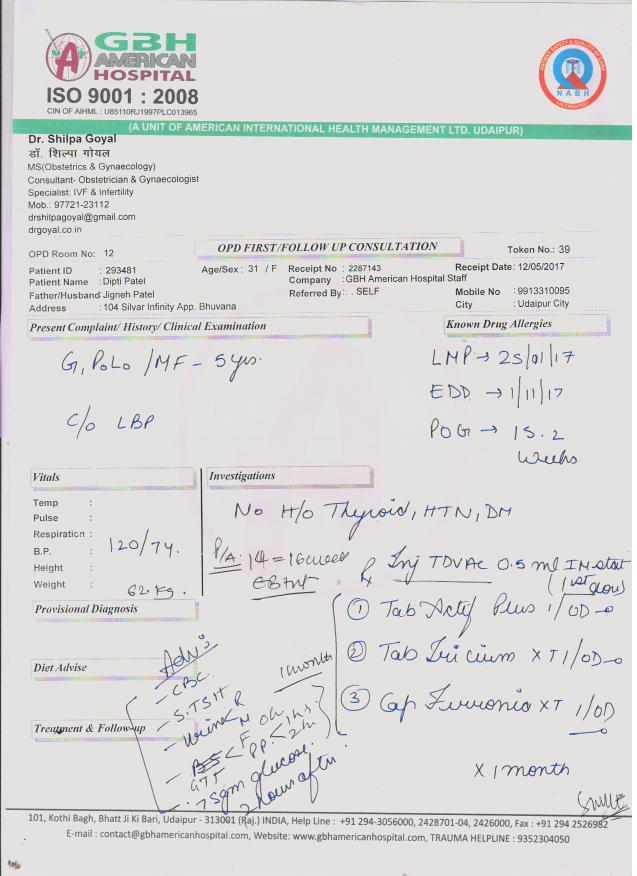 GBH
AMERICAN
HOSPITAL
ISO 9001 : 2008
CIN OF AIHML : U85110RJ1997PLC013965
NABH
(A UNIT OF AMERICAN INTERNATIONAL HEALTH MANAGEMENT LTD. UDAIPUR)
Dr. Shilpa Goyal
डॉ. शिल्पा गोयल
MS(Obstetrics & Gynaecology)
Consultant- Obstetrician & Gynaecologist
Specialist: IVF & Infertility
Mob.: 97721-23112
drshilpagoyal@gmail.com
drgoyal.co.in
OPD Room No: 12
OPD FIRST/FOLLOW UP CONSULTATION
Token No.: 39
Patient ID : 293481 Age/Sex : 31 / F Receipt No : 2287143 Receipt Date: 12/05/2017
Patient Name : Dipti Patel Company : GBH American Hospital Staff
Father/Husband Jigneh Patel Referred By: . . SELF Mobile No : 9913310095
Address : 104 Silvar Infinity App. Bhuvana City : Udaipur City
Present Complaint/ History/ Clinical Examination
Known Drug Allergies
G1 P0L0 / MF - 5 yrs.
LMP → 25/01/17
EDD → 1/11/17
C/o LBP
POG → 15.2
weeks
Vitals
Investigations
Temp :
Pulse :
Respiration :
B.P. : 120/74.
Height :
Weight : 62 kg.
No H/o Thyroid, HTN, DM
P/A: 14 - 16 week
Rx Inj TDVAC 0.5 ml IM stat
(1st dose)
① Tab Actif Plus 1/OD
② Tab XT 1/OD
③ Cap XT 1/OD
X 1 month
Provisional Diagnosis
Diet Advise
Treatment & Follow-up
Adv:
1 month
- CBC.
- S.TSH
- Urine R
GTT
75gm glucose.
2 hours after
101, Kothi Bagh, Bhatt Ji Ki Bari, Udaipur - 313001 (Raj.) INDIA, Help Line : +91 294-3056000, 2428701-04, 2426000, Fax : +91 294 2526982
E-mail : contact@gbhamericanhospital.com, Website: www.gbhamericanhospital.com, TRAUMA HELPLINE : 9352304050